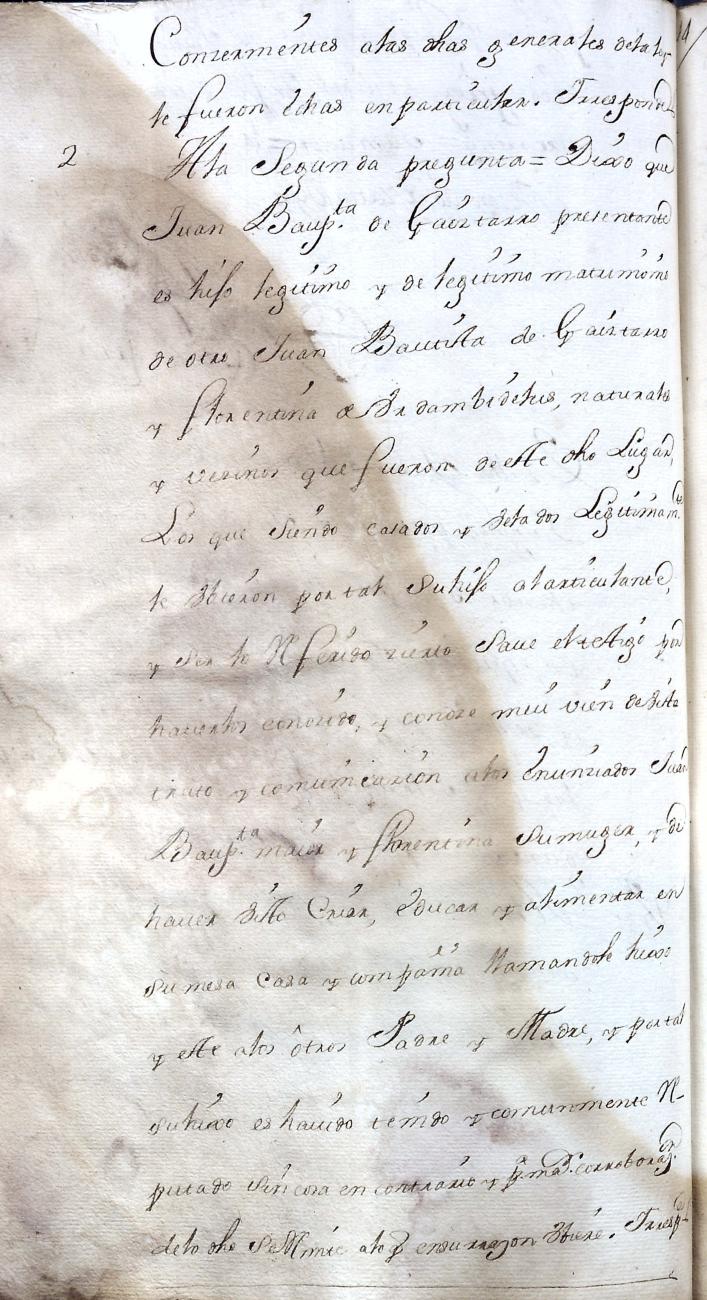 Conzermentes a las dhas generales de la ley
le fueron echas en particular. Y respondᵉ
2 A la Segunda pregunta = Dixo que
Juan Baup.ᵗᵃ de Gaiztarro presentante
es hijo legitimo y de legitimo matrimonio
de otro Juan Bautista de Gaiztarro
y florentina de naturales
y vezinos que fueron de este dho Lugar,
Los que siendo casados y velados Legitimamᵗᵉ
le tubieron por tal su hijo al articulante,
y ser lo Referido zierto Save el testigo por
haverlos conozido, y conoze mui vien de vista
trato y comunicazion a los enunziados Juan
Baup.ᵗᵃ maior y florentina su muger, y de
haver visto Criar, educar y alimentar en
su mesa casa y compañia llamandole hixo
y este a los otros Padre y Madre, y por tal
su hixo es havido tenido y comunmente Re-
putado sin cosa en contrario y p.ª mas corroboraz.ᵒⁿ
de lo dho se Remite a lo q en su razon tubiere. Y resp.ᵈᵉ